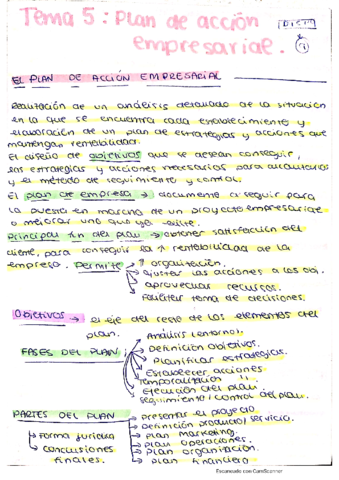 Tema 5: Plan de acción
empresarial.
EL PLAN DE ACCIÓN EMPRESARIAL
Realización de un análisis detallado de la situación
en la que se encuentra cada establecimiento y
elaboración de un plan de estrategias y acciones que
mantengan rentabilidad.
El diseño de objetivos que se desean conseguir,
las estrategias y acciones necesarias para alcanzarlos
y el método de seguimiento y control.
El plan de empresa → documento a seguir para
la puesta en marcha de un proyecto empresarial
o mejorar uno que ya existe.
Principal fin del plan → obtener satisfacción del
cliente, para conseguir la ↑ rentabilidad de la
empresa. Permite → ↑ organización.
→ ajustar las acciones a los obj.
→ aprovechar recursos.
Facilitar toma de decisiones.
Objetivos → el eje del resto de los elementos del
plan.
FASES DEL PLAN
→ Análisis (entorno).
→ Definición objetivos.
→ Planificar estrategias.
→ Establecer acciones
Temporalización "
→ Ejecución del plan.
Seguimiento / control del plan.
PARTES DEL PLAN
→ Presentar el proyecto
→ Definición producto/servicio.
→ Plan marketing.
→ Plan operaciones.
→ Plan organización.
→ Plan financiero
→ Forma jurídica
→ conclusiones
finales.
Escaneado con CamScanner